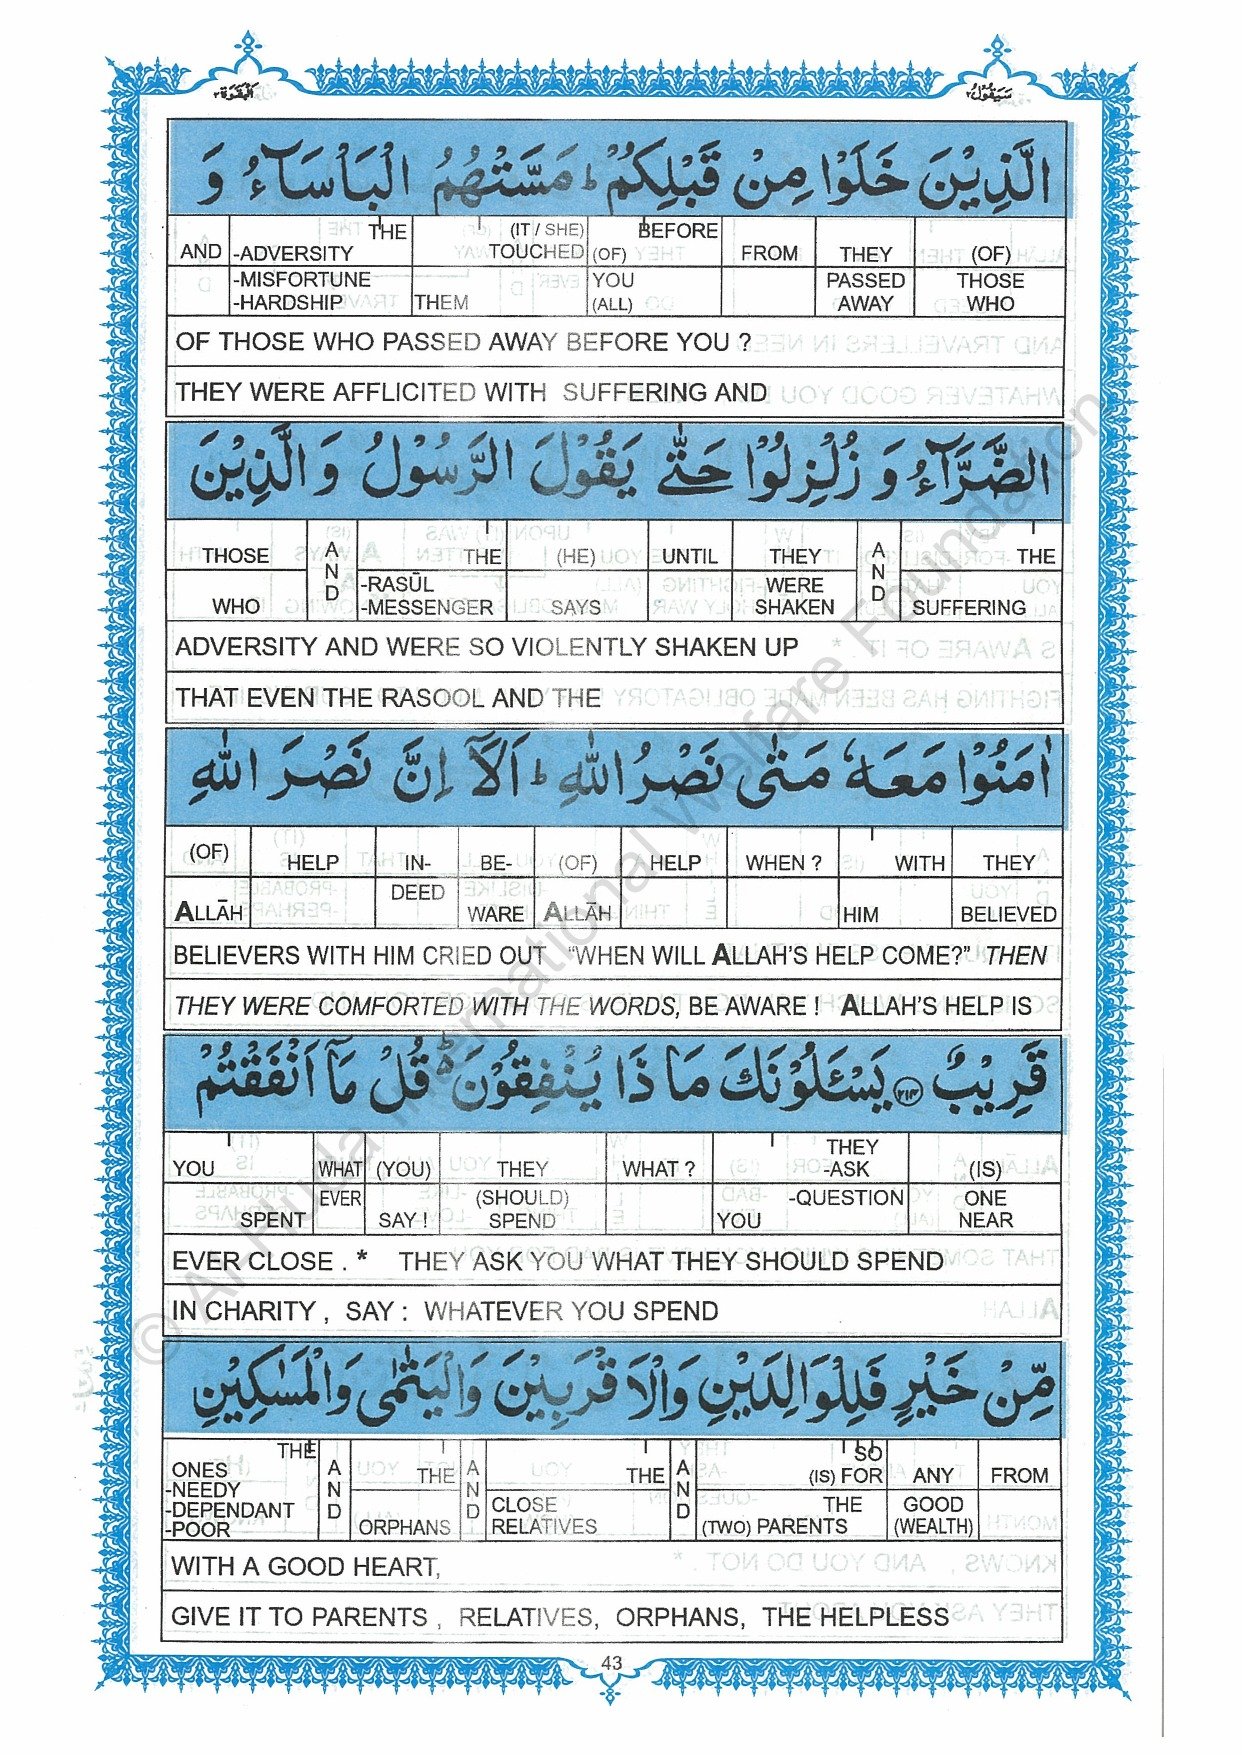 البقرة ٢
سيقول ٢
الَّذِيْنَ خَلَوْا مِنْ قَبْلِكُمْ ؕ مَسَّتْهُمُ الْبَاْسَآءُ وَ
AND | THE -ADVERSITY -MISFORTUNE -HARDSHIP | (IT / SHE) TOUCHED THEM | BEFORE (OF) YOU (ALL) | FROM | THEY PASSED AWAY | (OF) THOSE WHO
OF THOSE WHO PASSED AWAY BEFORE YOU ?
THEY WERE AFFLICITED WITH SUFFERING AND
الضَّرَّآءُ وَ زُلْزِلُوْا حَتّٰى يَقُوْلَ الرَّسُوْلُ وَ الَّذِيْنَ
THOSE WHO | AND | THE -RASŪL -MESSENGER | (HE) SAYS | UNTIL | THEY WERE SHAKEN | AND | THE SUFFERING
ADVERSITY AND WERE SO VIOLENTLY SHAKEN UP
THAT EVEN THE RASOOL AND THE
اٰمَنُوْا مَعَهٗ مَتٰى نَصْرُ اللّٰهِ ؕ اَلَآ اِنَّ نَصْرَ اللّٰهِ
(OF) ALLĀH | HELP | IN-DEED | BE-WARE | (OF) ALLĀH | HELP | WHEN ? | WITH HIM | THEY BELIEVED
BELIEVERS WITH HIM CRIED OUT “WHEN WILL ALLAH’S HELP COME?” THEN
THEY WERE COMFORTED WITH THE WORDS, BE AWARE ! ALLAH’S HELP IS
قَرِيْبٌ ﴿٢١٤﴾ يَسْـَٔلُوْنَكَ مَا ذَا يُنْفِقُوْنَ ؕ قُلْ مَآ اَنْفَقْتُمْ
YOU SPENT | WHAT EVER | (YOU) SAY ! | THEY (SHOULD) SPEND | WHAT ? | THEY -ASK -QUESTION YOU | (IS) ONE NEAR
EVER CLOSE . * THEY ASK YOU WHAT THEY SHOULD SPEND
IN CHARITY , SAY : WHATEVER YOU SPEND
مِّنْ خَيْرٍ فَلِلْوَالِدَيْنِ وَالْاَقْرَبِيْنَ وَالْيَتٰمٰى وَالْمَسٰكِيْنِ
THE ONES -NEEDY -DEPENDANT -POOR | AND | THE ORPHANS | AND | THE CLOSE RELATIVES | AND | SO (IS) FOR THE (TWO) PARENTS | ANY GOOD (WEALTH) | FROM
WITH A GOOD HEART,
GIVE IT TO PARENTS , RELATIVES, ORPHANS, THE HELPLESS
43
© Al-Huda International Welfare Foundation